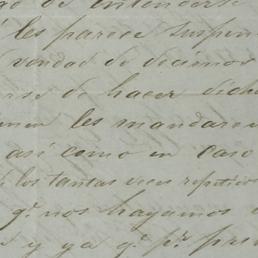 de entenderte
les parece suspen
bondad de decirnos
de hacer dicho
les mandaré
así como en caso
los tantas veces repetidos
q.e nos hagamos
y ya q.e p.r pres